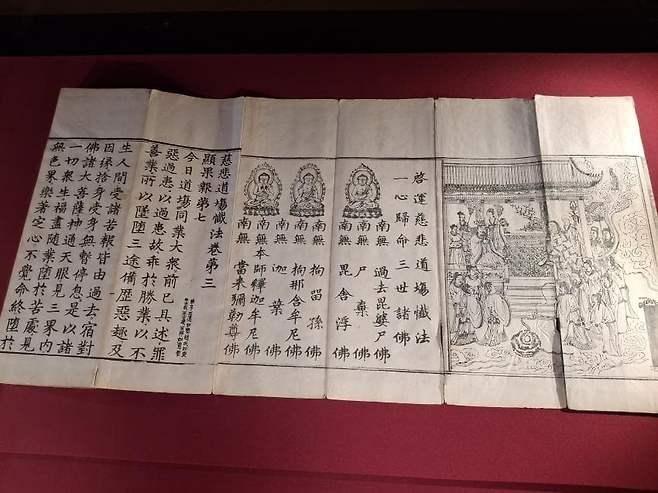 啓運慈悲道場懺法
一心歸命三世諸佛
南無過去毘婆尸佛
南無尸棄佛
南無毘舍浮佛
南無拘留孫佛
南無拘那含牟尼佛
南無迦葉佛
南無本師釋迦牟尼佛
南無當来彌勒尊佛
慈悲道場懺法卷第三
顯果報第七
今日道場同業大衆前已具述罪
惡過患以過患故乖於勝業以不
善業所以墜墮三途備歷惡趣及
生人間受諸苦報皆由過去宿對
因緣捨身受身無暫停息是以諸
佛諸大菩薩神通天眼見三界内
一切衆生福盡隨業墮於苦處見
無色界樂著定心不覺命終墮於